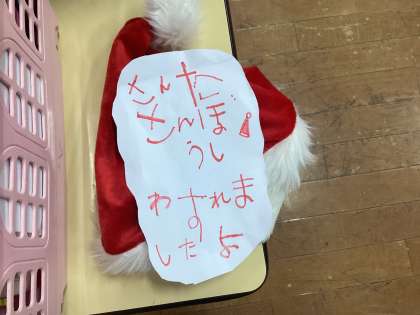 さんた
さんぼ
うし
わすれま
したよ